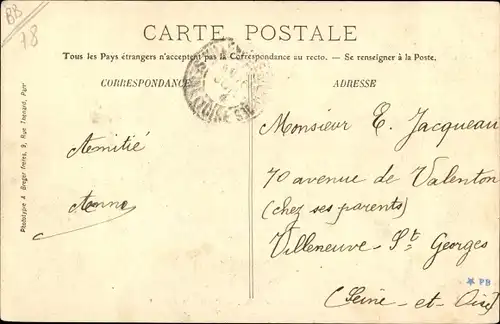 BB
78
CARTE POSTALE
Tous les Pays étrangers n'acceptent pas la Correspondance au recto. — Se renseigner à la Poste.
CORRESPONDANCE
ADRESSE
Amitié
Anne
Monsieur E. Jacqueau
70 avenue de Valenton
(chez ses parents)
Villeneuve-St Georges
(Seine-et-Oise)
PB
Phototypie A. Breger frères, 9, Rue Thénard, Paris